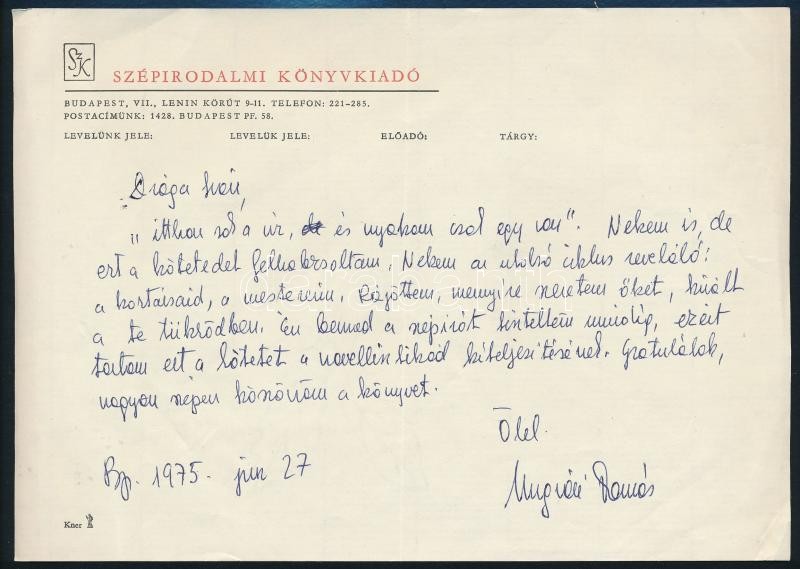 SzK
SZÉPIRODALMI KÖNYVKIADÓ
BUDAPEST, VII., LENIN KÖRÚT 9-11. TELEFON: 221-285.
POSTACÍMÜNK: 1428. BUDAPEST PF. 58.
LEVELÜNK JELE: LEVELÜK JELE: ELŐADÓ: TÁRGY:
Drága Iván,
"itthon sok a úr, és nyakam csak egy van". Nekem is, de
ezt a kötetedet felhabzsoltam. Nekem az utolsó ciklus reveláló:
a kortársaid, a mestereim. Rájöttem, mennyire szeretem őket, kivált
a te tükrödben. Én benned a szépírót tiszteltem mindig, ezért
tartom ezt a kötetet a novellisztikád kiteljesítésének. Gratulálok,
nagyon szépen köszönöm a könyvet.
Ölel
Bp. 1975. jun 27
Ungvári Tamás
Kner